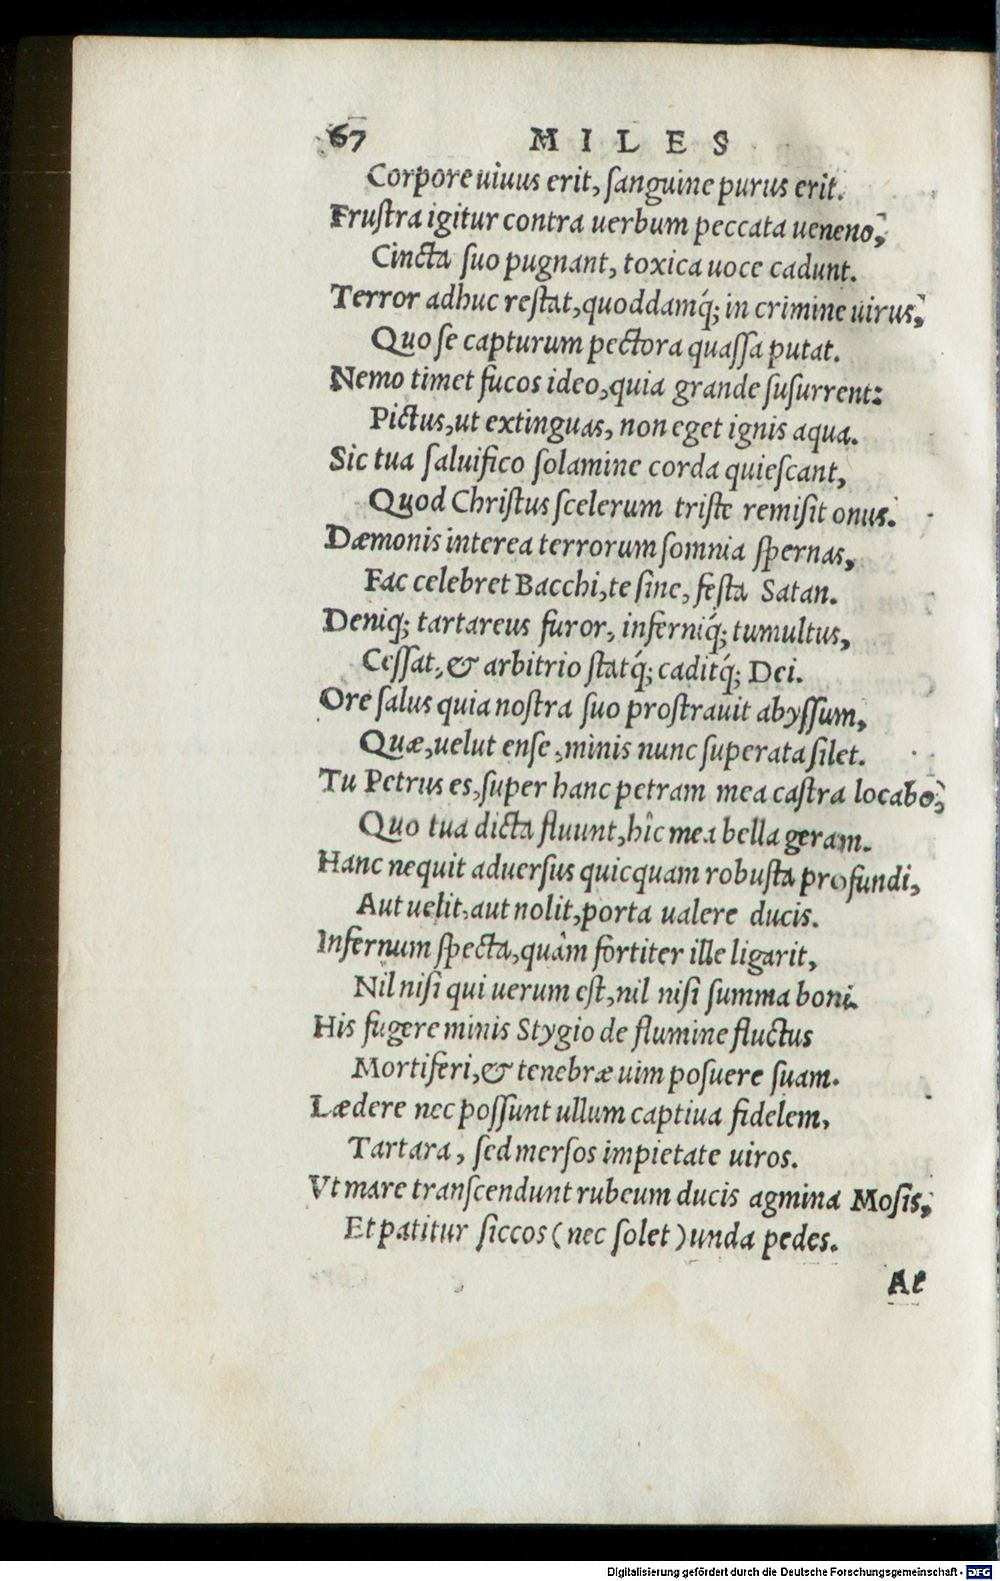 67 MILES
Corpore uiuus erit, ſanguine purus erit.
Fruſtra igitur contra uerbum peccata ueneno,
Cincta ſuo pugnant, toxica uoce cadunt.
Terror adhuc reſtat, quoddamq́; in crimine uirus,
Quo ſe capturum pectora quaſſa putat.
Nemo timet fucos ideo, quia grande ſuſurrent:
Pictus, ut extinguas, non eget ignis aqua.
Sic tua ſaluifico ſolamine corda quieſcant,
Quod Chriſtus ſcelerum triſte remiſit onus.
Dæmonis interea terrorum ſomnia ſpernas,
Fac celebret Bacchi, te ſine, feſta Satan.
Deniq; tartareus furor, inferniq́; tumultus,
Ceſſat, & arbitrio ſtatq́; caditq́; Dei.
Ore ſalus quia noſtra ſuo proſtrauit abyſſum,
Quæ, uelut enſe, minis nunc ſuperata ſilet.
Tu Petrus es, ſuper hanc petram mea caſtra locabo,
Quo tua dicta fluunt, hîc mea bella geram.
Hanc nequit aduerſus quicquam robuſta profundi,
Aut uelit, aut nolit, porta ualere ducis.
Infernum ſpecta, quàm fortiter ille ligarit,
Nil niſi qui uerum eſt, nil niſi ſumma boni.
His fugere minis Stygio de flumine fluctus
Mortiferi, & tenebræ uim poſuere ſuam.
Lædere nec poſſunt ullum captiua fidelem,
Tartara, ſed merſos impietate uiros.
Vt mare tranſcendunt rubeum ducis agmina Moſis,
Et patitur ſiccos (nec ſolet) unda pedes.
At
Digitalisierung gefördert durch die Deutsche Forschungsgemeinschaft - DFG